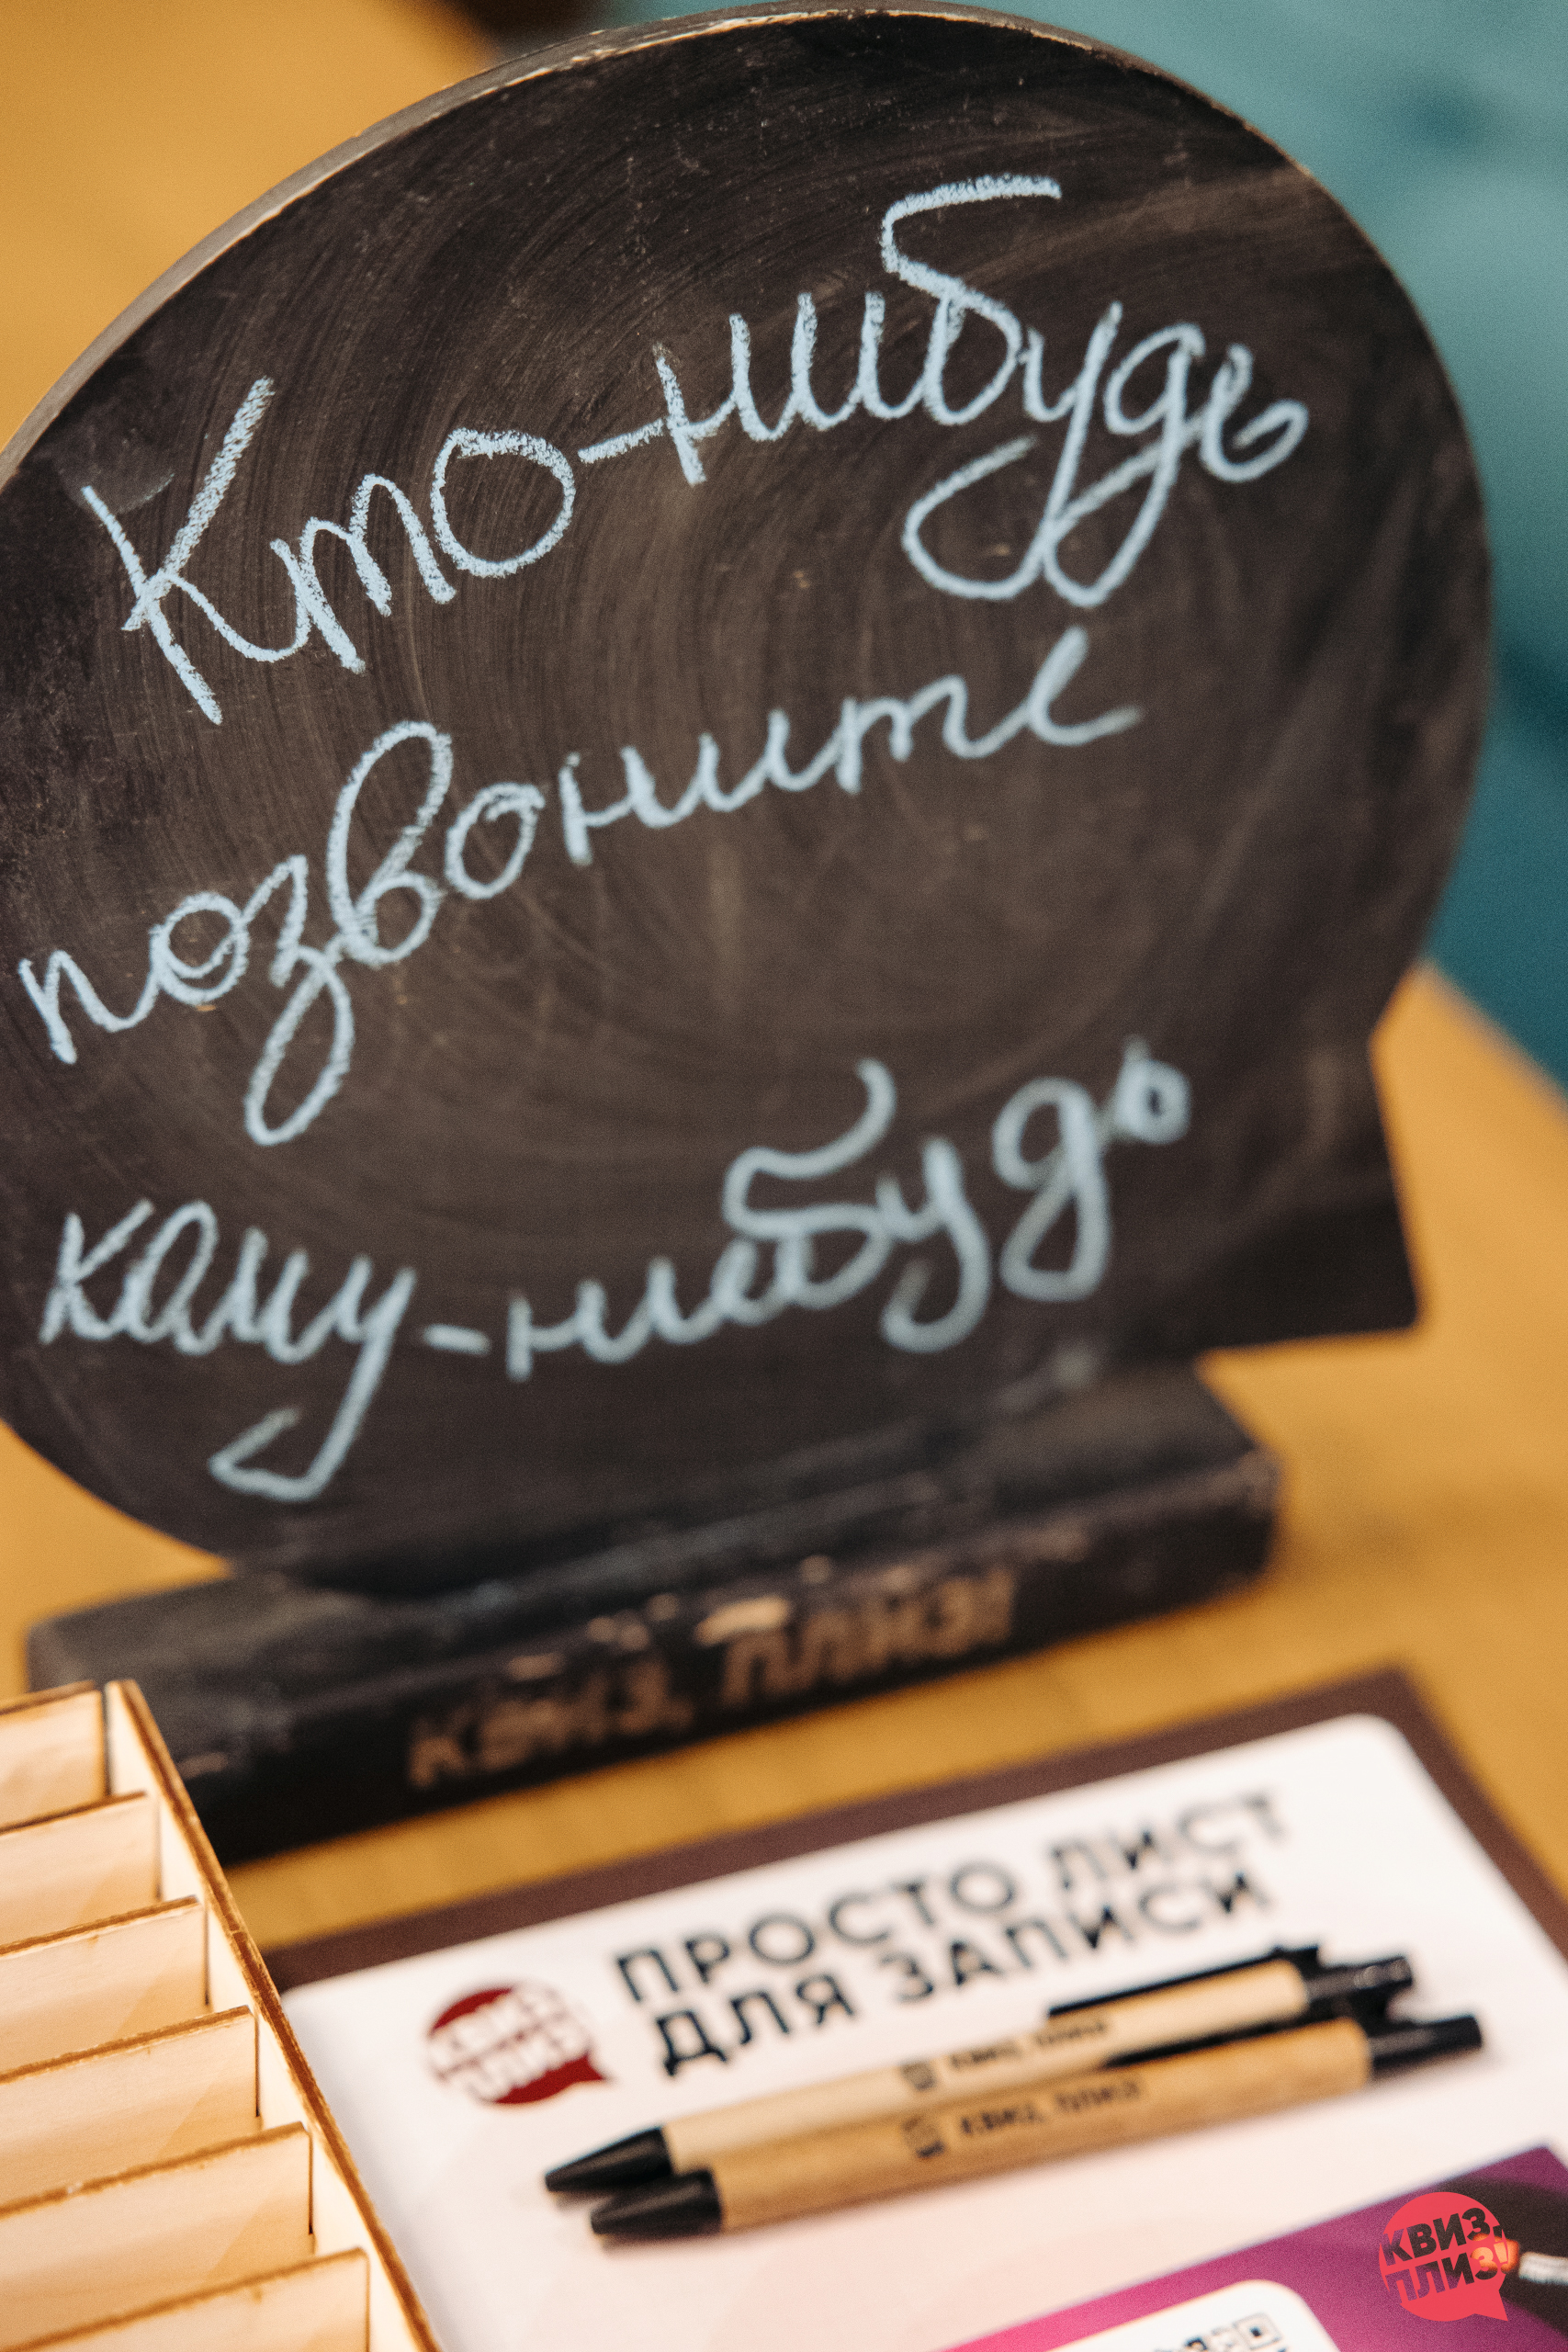 Кто-нибудь
позвоните
кому-нибудь
КВИЗ, ПЛИЗ!
ПРОСТО ЛИСТ
ДЛЯ ЗАПИСИ
КВИЗ,
ПЛИЗ!
КВИЗ, ПЛИЗ!
КВИЗ, ПЛИЗ!
КВИЗ,
ПЛИЗ!